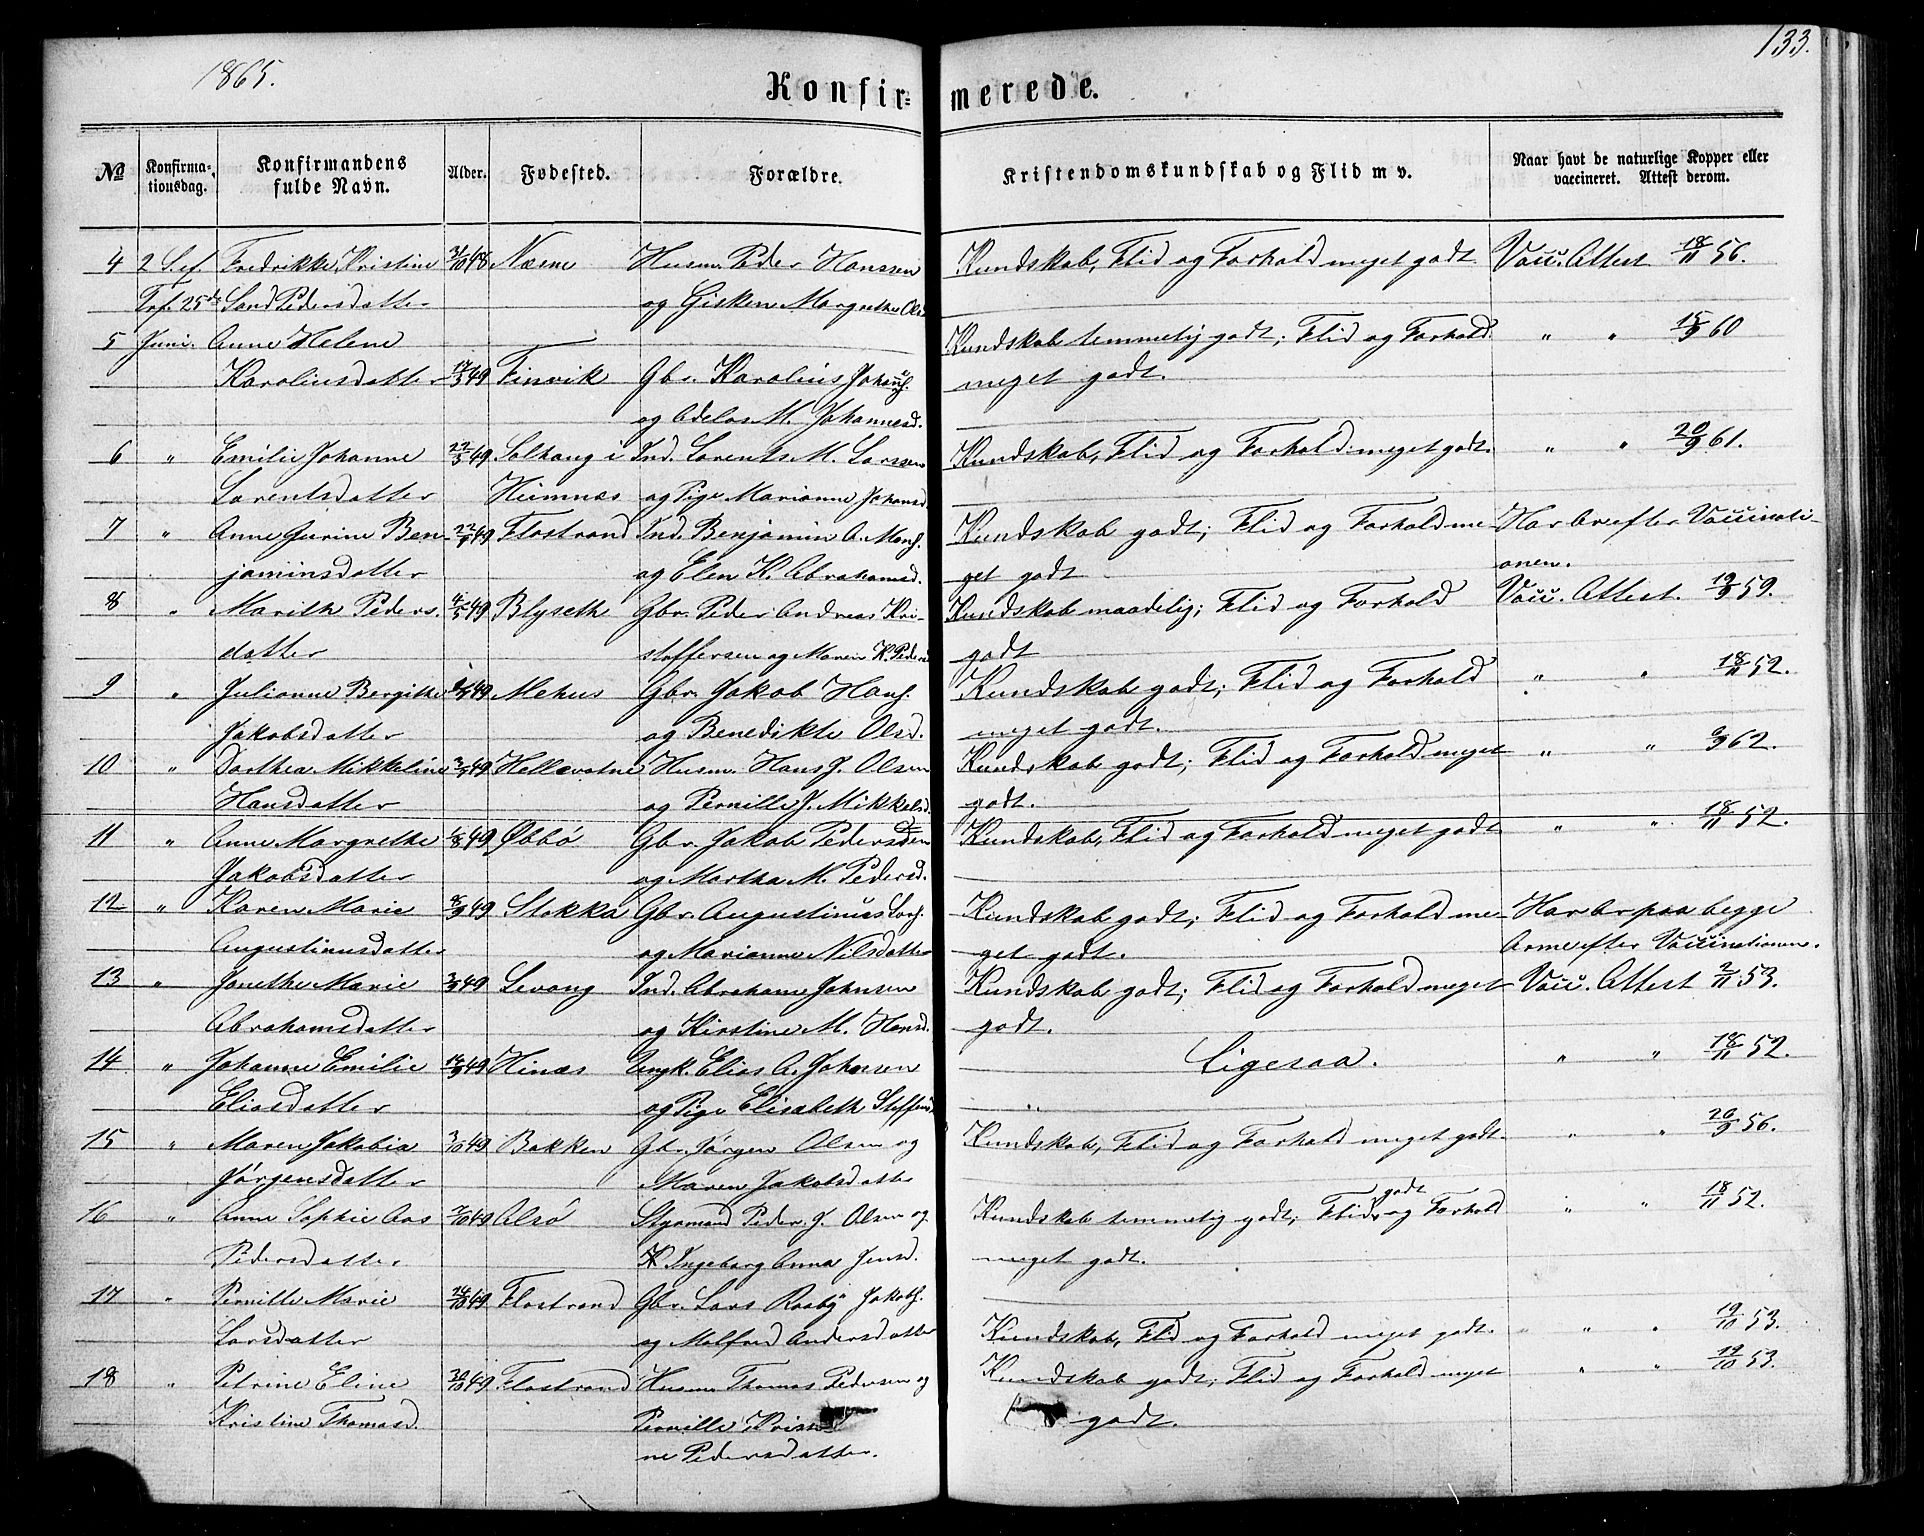 1865.
133.
Konfir= merede.
No
Konfirma=
tionsdag.
Konfirmandens
fulde Navn.
Alder.
Fødested.
Forældre.
Kristendomskundskab og Flid m v.
Naar havt de naturlige Kopper eller
vaccineret. Attest derom.
4 2 S. ef. Fredrikke Kristine 48 Næsne Husm. Peder Hanssen Kundskab, Flid og Forhold meget godt Vacc. Attest 18/11 56.
Trf. 25de Sand Pedersdatter og Gisken Margrethe Olsd
5 Juni. Anne Helene Kundskab temmelig godt; Flid og Forhold " " 15/9 60
Karoliusdatter 17/3 49 Finvik Gbr. Karolius Johans. meget godt.
og Adelas M. Johannesd.
6 " Emilie Johanne 22/3 49 Solhaug i Ind. Lorents M. Larssen Kundskab, Flid og Forhold meget godt. " " 20/9 61.
Lorentsdatter Hemnæs og Pige Marianne Johansd
7 " Anne Gurine Ben- 49 Flostrand Ind. Benjamin A. Mons. Kundskab godt; Flid og Forhold me- Har Ar efter Vaccinati-
jaminsdatter og Elen K. Abrahamsd. get godt onen.
8 " Marith Peders. 4/5 49 Blyseth Gbr. Peder Andreas Kri- Kundskab maadelig; Flid og Forhold Vacc. Attest. 19/9 59.
datter stoffersen og Maren K. Pedersd godt
9 " Julianne Bergithe 49 Mehus Gbr. Jakob Hans. Kundskab godt; Flid og Forhold " " 18/11 52.
Jakobsdatter og Benedikte Olsd. meget godt.
10 " Dorthea Mikkeline 49 Hellevatne Husm. Hans J. Olsen Kundskab godt; Flid og Forhold meget " " 62.
Hansdatter og Pernille J. Mikkelsd. godt.
11 " Anne Margrethe 49 Øbbø Gbr. Jakob Pedersen Kundskab, Flid og Forhold meget godt " " 18/11 52.
Jakobsdatter og Martha M. Pedersd.
12 " Karen Marie 8/9 49 Stokka Gbr. Augustinus Lars. Kundskab godt; Flid og Forhold me- Har Ar paa begge
Augustinusdatter og Marianne Nilsdatter get godt. Arme efter Vaccinationen.
13 " Janethe Marie 3/9 49 Levang Ind. Abraham Johnsen Kundskab godt; Flid og Forhold meget Vacc. Attest 2/11 53.
Abrahamsdatter og Kirstine M. Hansd. godt.
14 " Johanne Emilie 14/9 49 Hinæs Ungk. Elias A. Johnsen Ligesaa. " " 18/11 52.
Eliasdatter og Pige Elisabeth Steffensd "
15 " Maren Jakobia 3/10 49 Bakken Gbr. Jørgen Olsen og Kundskab, Flid og Forhold meget godt. " " 20/9 56.
Jørgensdatter Maren Jakobsdatter
16 " Anne Sophie Aas 49 Alsø Styrmand Peder J. Olsen og Kundskab temmelig godt; Flid godt og Forhold " " 18/11 52.
Pedersdatter K Ingeborg Anna Jensd. meget godt.
17 " Pernille Marie 14/10 49 Flostrand Gbr. Lars Rasby Jakobs.
Larsdatter og Malfred Andersdatter Kundskab, Flid og Forhold meget godt. " " " 19/10 53.
18 " Petrine Eline 30/10 49 Flostrand Husm. Thomas Pedersen og Kundskab godt; Flid og Forhold meget " " 19/10 53.
Kristine Thomasd. Pernille godt.
ne Pedersdatter.